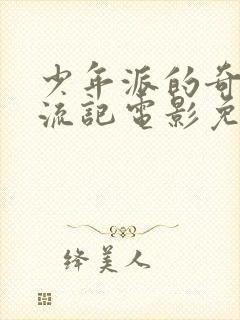 少年派的奇
流記電影免
绛美人